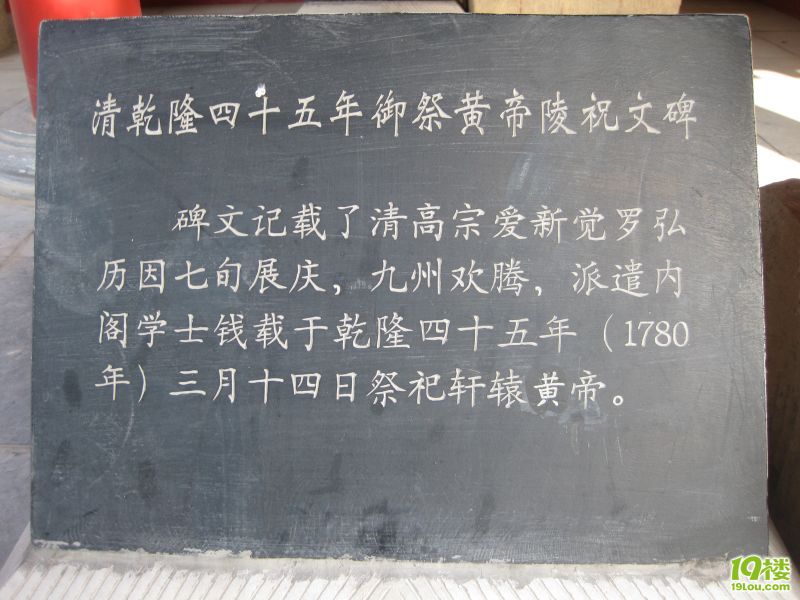 清乾隆四十五年御祭黄帝陵祝文碑
碑文记载了清高宗爱新觉罗弘
历因七旬展庆，九州欢腾，派遣内
阁学士钱载于乾隆四十五年（1780
年）三月十四日祭祀轩辕黄帝。
19楼
19lou.com